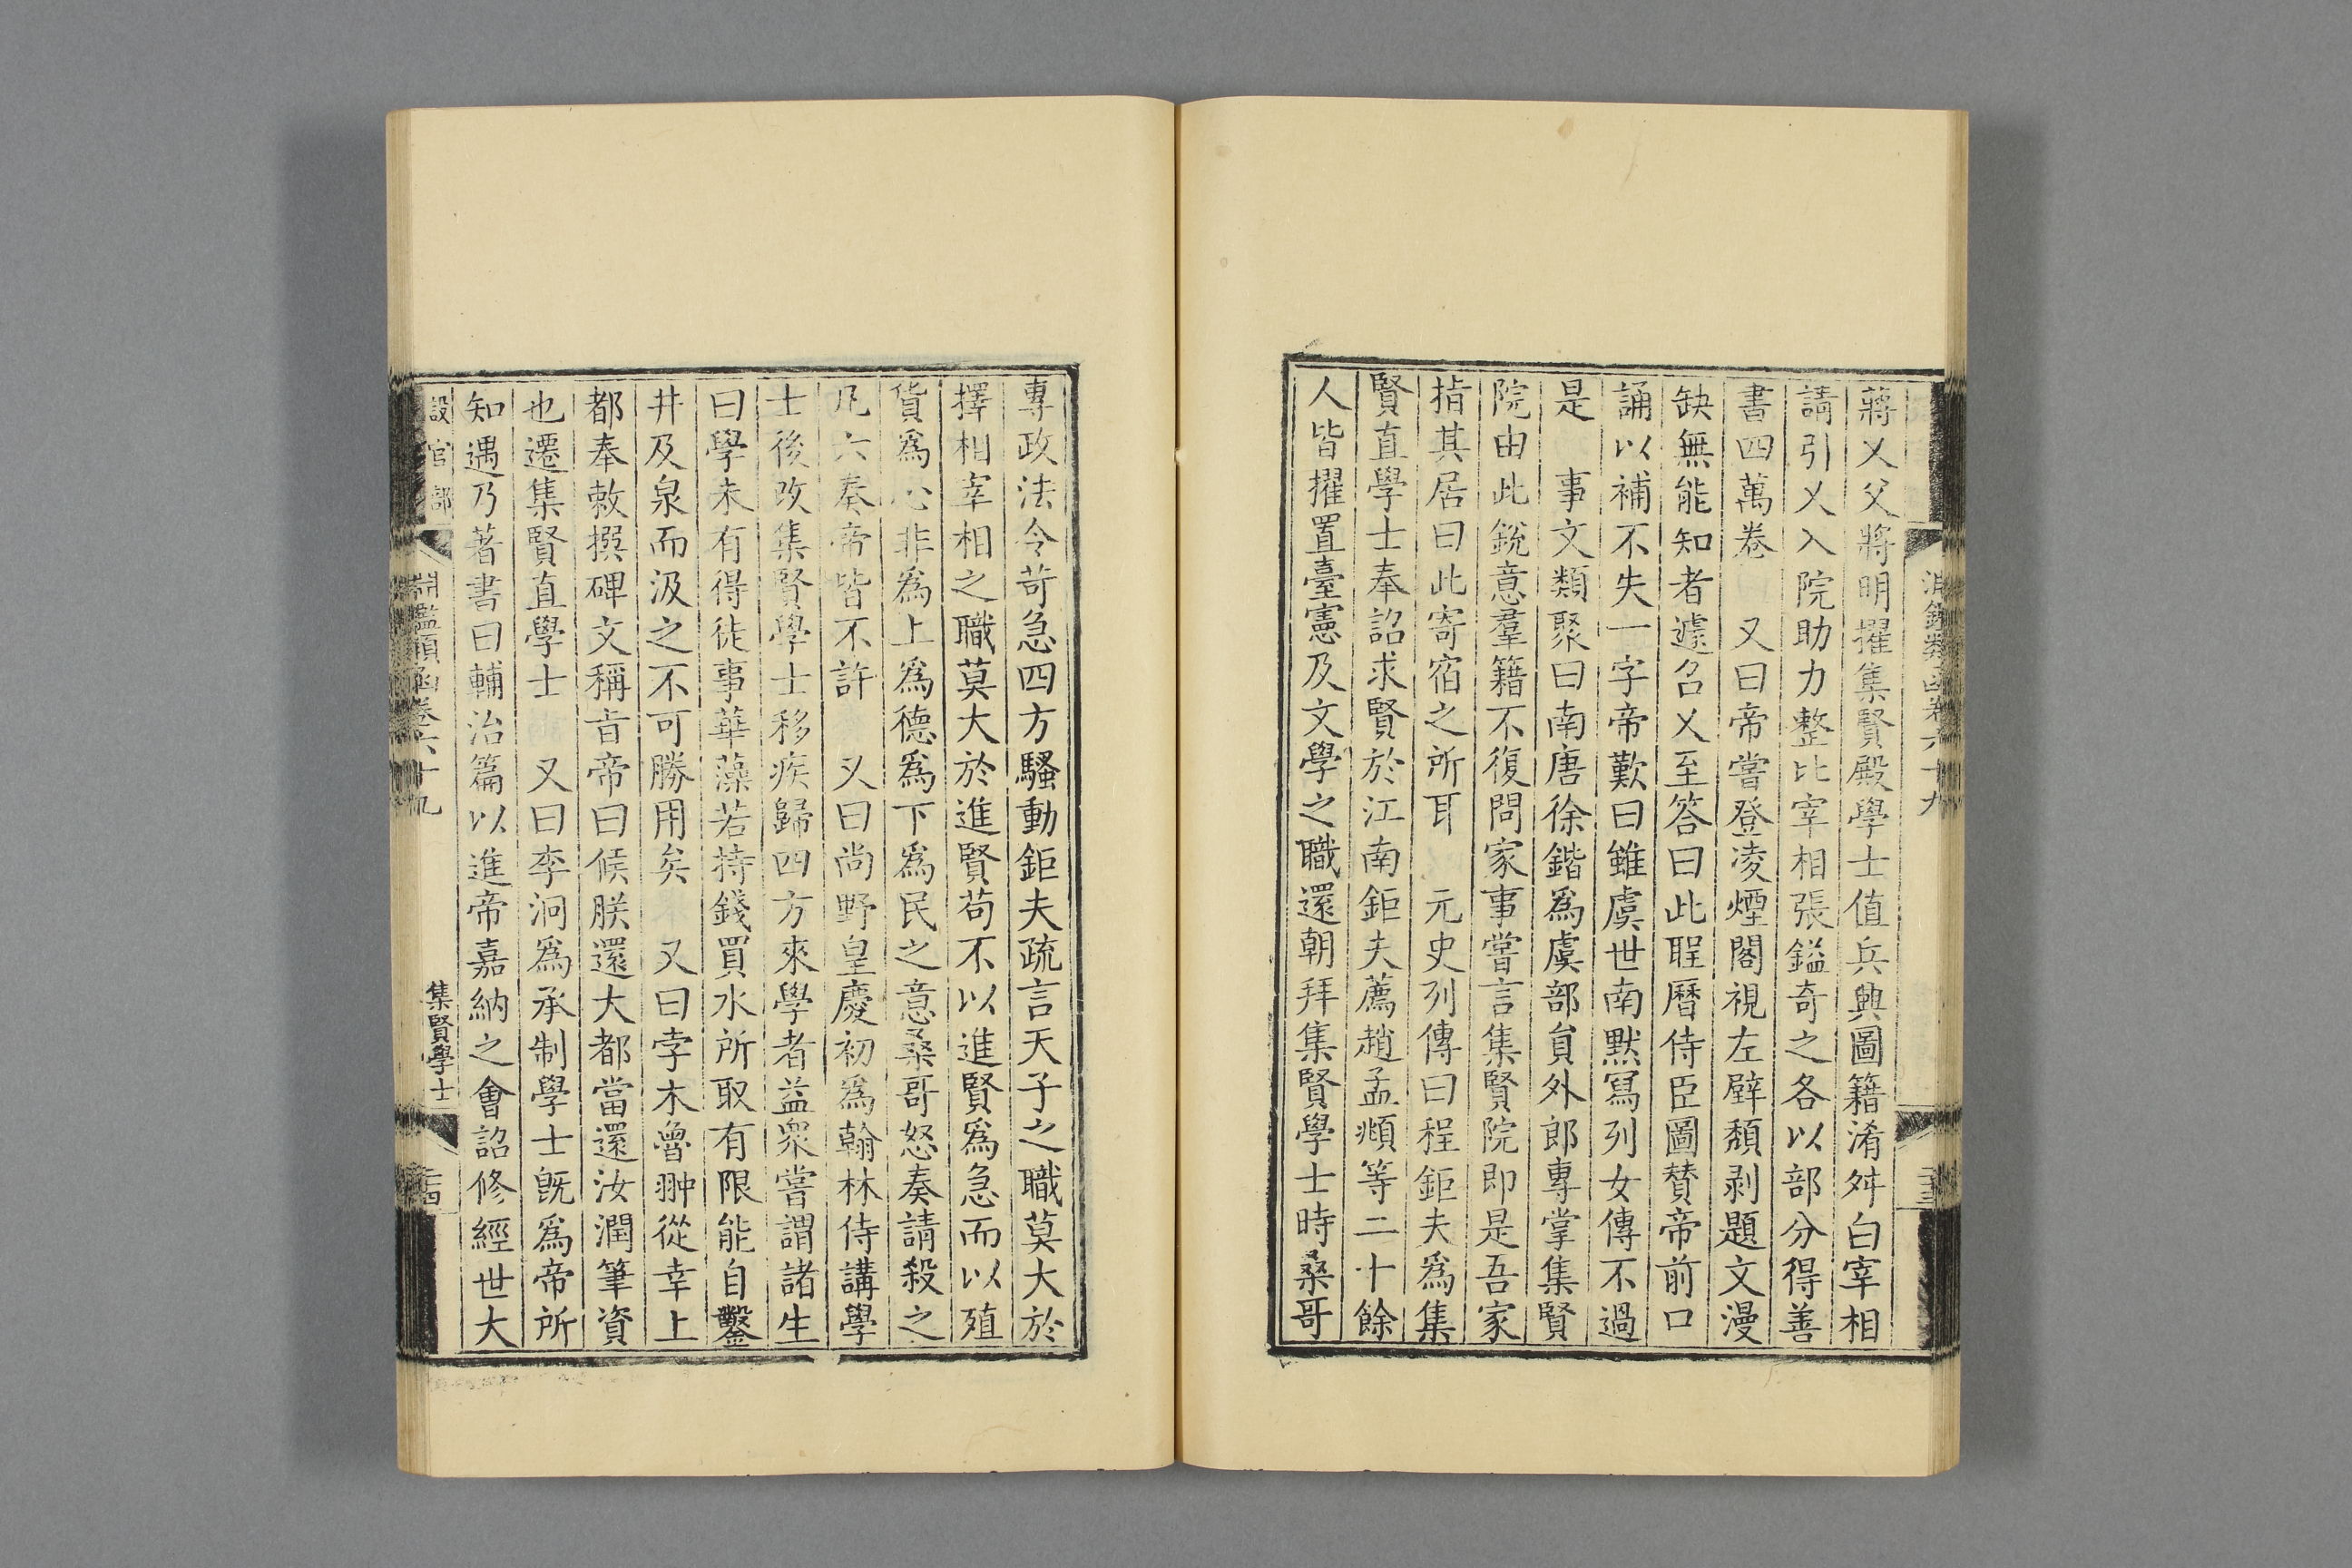 淵鑑類函卷六十九
二十三
蔣乂父將明擢集賢殿學士值兵興圖籍淆舛白宰相
請引乂入院助力整比宰相張鎰奇之各以部分得善
書四萬卷　又曰帝嘗登凌煙閣視左壁頽剥題文漫
缺無能知者遽召乂至答曰此聖曆侍臣圖賛帝前口
誦以補不失一字帝歎曰雖虞世南黙冩列女傳不過
是　事文類聚曰南唐徐鍇爲虞部貟外郎專掌集賢
院由此銳意羣籍不復問家事嘗言集賢院即是吾家
指其居曰此寄宿之所耳　元史列傳曰程鉅夫爲集
賢直學士奉詔求賢於江南鉅夫薦趙孟頫等二十餘
人皆擢置臺憲及文學之職還朝拜集賢學士時桑哥
專政法令苛急四方騷動鉅夫疏言天子之職莫大於
擇相宰相之職莫大於進賢苟不以進賢爲急而以殖
貨爲心非爲上爲德爲下爲民之意桑哥怒奏請殺之
凡六奏帝皆不許　又曰尚野皇慶初爲翰林侍講學
士後改集賢學士移疾歸四方來學者益衆嘗謂諸生
曰學未有得徒事華藻若持錢買水所取有限能自鑿
井及泉而汲之不可勝用矣　又曰孛木魯翀從幸上
都奉敕撰碑文稱旨帝曰候朕還大都當還汝潤筆資
也遷集賢直學士　又曰李泂爲承制學士旣爲帝所
知遇乃著書曰輔治篇以進帝嘉納之會詔修經世大
設官部
淵鑑類函卷六十九
集賢學士
二十四